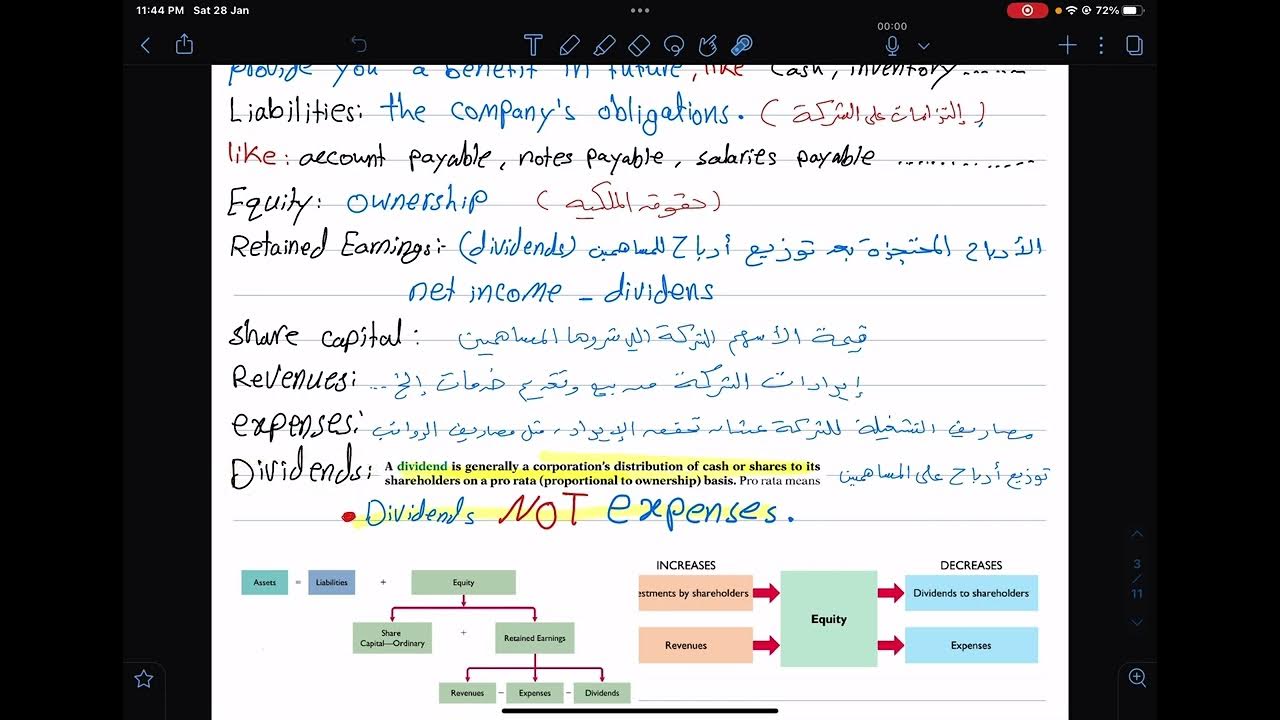 11:44 PM Sat 28 Jan
72%
00:00
provide you a benefit in future, like cash, inventory........
Liabilities: the company's obligations. (إلتزامات على الشركة)
like: account payable, notes payable, salaries payable ..............
Equity: ownership (حقوق الملكيه)
Retained Earnings:- الأرباح المحتجزة بعد توزيع أرباح للمساهمين (dividends)
net income - dividens
share capital: قيمة الأسهم الشركة اللي شروها المساهمين
Revenues: إيرادات الشركة من بيع وتقديم خدمات إلخ ...
expenses: مصاريف التشغيلة للشركة عشان تحقق الإيراد، مثل مصاريف الرواتب
Dividends: A dividend is generally a corporation's distribution of cash or shares to its توزيع أرباح على المساهمين
shareholders on a pro rata (proportional to ownership) basis. Pro rata means
Dividends NOT expenses.
INCREASES DECREASES
Assets = Liabilities + Equity
estments by shareholders Equity Dividends to shareholders
Share Capital—Ordinary + Retained Earnings
Revenues Expenses
Revenues - Expenses - Dividends
3
/
11